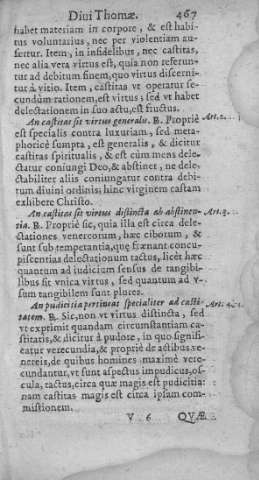 Diui Thomæ. 467
habet materiam in corpore, & est habi-
tus voluntarius, nec per violentiam au-
fertur. Item, in infidelibus, nec castitas,
nec alia vera virtus est, quia non referun-
tur ad debitum finem, quo virtus discerni-
tur à vitio. Item, castitas vt operatur se-
cundùm rationem, est virtus; sed vt habet
delectationem in suo actu, est fructus.
An castitas sit virtus generalis. R. Propriè Art. 2.
est specialis contra luxuriam, sed meta-
phoricè sumpta, est generalis, & dicitur
castitas spiritualis, & est cùm mens dele-
ctatur coniungi Deo, & abstinet, ne dele-
ctabiliter aliis coniungatur contra debi-
tum diuini ordinis; hinc virginem castam
exhibere Christo.
An castitas sit virtus distincta ab abstinen- Art. 3.
tia. R. Propriè sic, quia illa est circa dele-
ctationes venereorum, hæc ciborum, &
sunt sub temperantia, quæ frænant concu-
piscentias delectationum tactus, licèt hæc
quantum ad iudicium sensus de tangibi-
libus sit vnica virtus, sed quantum ad v-
sum tangibilem sunt plures.
An pudicitia pertineat specialiter ad casti- Art. 4.
tatem. R. Sic, non vt virtus distincta, sed
vt exprimit quandam circunstantiam ca-
stitatis, & dicitur à pudore, in quo signifi-
catur verecundia, & propriè de actibus ve-
nereis, de quibus homines maximè vere-
cundantur, vt sunt aspectus impudicus, os-
cula, tactus, circa quæ magis est pudicitia:
nam castitas magis est circa ipsam com-
mistionem.
V. 6 QVÆ